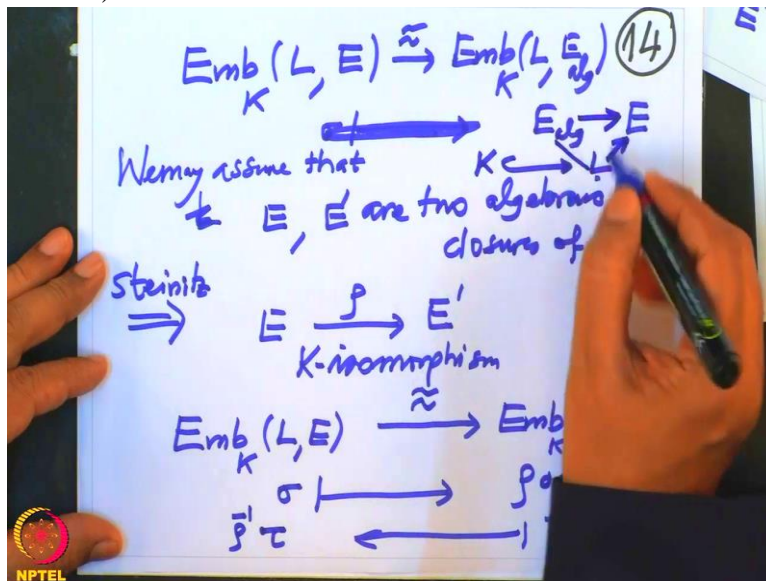 Emb_K (L, E) ≈→ Emb_K (L, E_alg) 14
E_alg → E
We may assume that K ↪ L
E, E' are two algebraic
closures of
Steinitz
⇒ E —ρ→ E'
K-isomorphism
Emb_K (L, E) ≈→ Emb_K
σ ↦ ρσ
ρ^{-1} τ ←
NPTEL
E